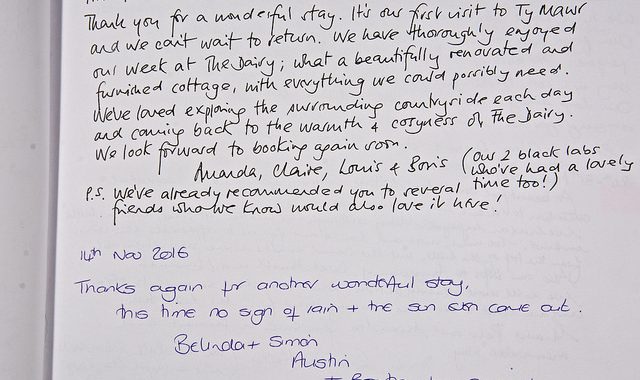 Thank you for a wonderful stay. It's our first visit to Ty Mawr
and we can't wait to return. We have thoroughly enjoyed
our week at The Dairy; what a beautifully renovated and
furnished cottage, with everything we could possibly need.
We've loved exploring the surrounding countryside each day
and coming back to the warmth & cosyness of The Dairy.
We look forward to booking again soon.
Amanda, Claire, Louis & Boris (our 2 black labs
who've had a lovely
time too!)
P.S. We've already recommended you to several
friends who we know would also love it here!
14th Nov 2016
Thanks again for another wonderful stay,
this time no sign of rain + the sun even came out.
Belinda + Simon
Austin